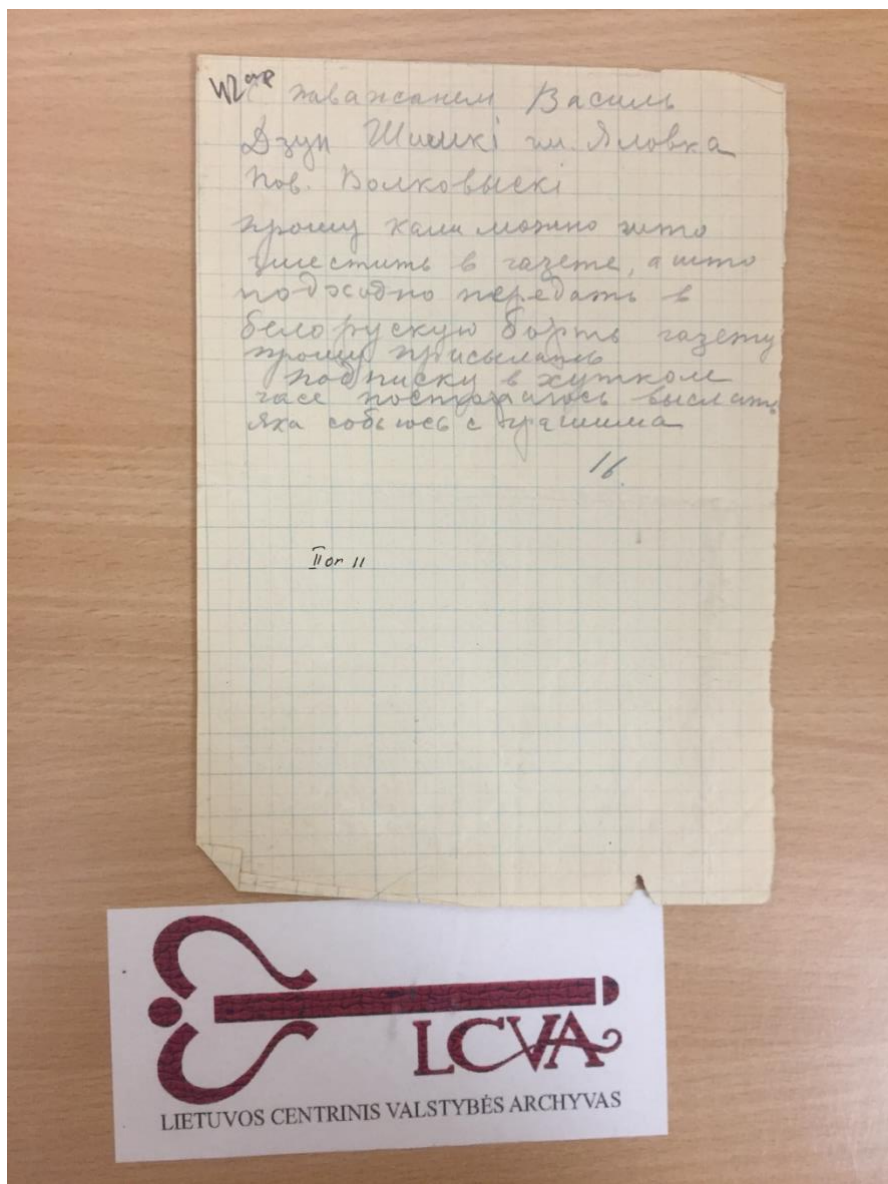 42 ар
с паважанем Василь
Дзун Шимкі гм. Яловка
пов. Волковыскі
прошу кали можно што
уместить в газете, а што
подходно передать в
белорускую борть газету
прошу присылать
подписку в хутком
часе постараюсь выслать
яка собьюсь с грашима
16.
II or 11
LCVA
LIETUVOS CENTRINIS VALSTYBĖS ARCHYVAS